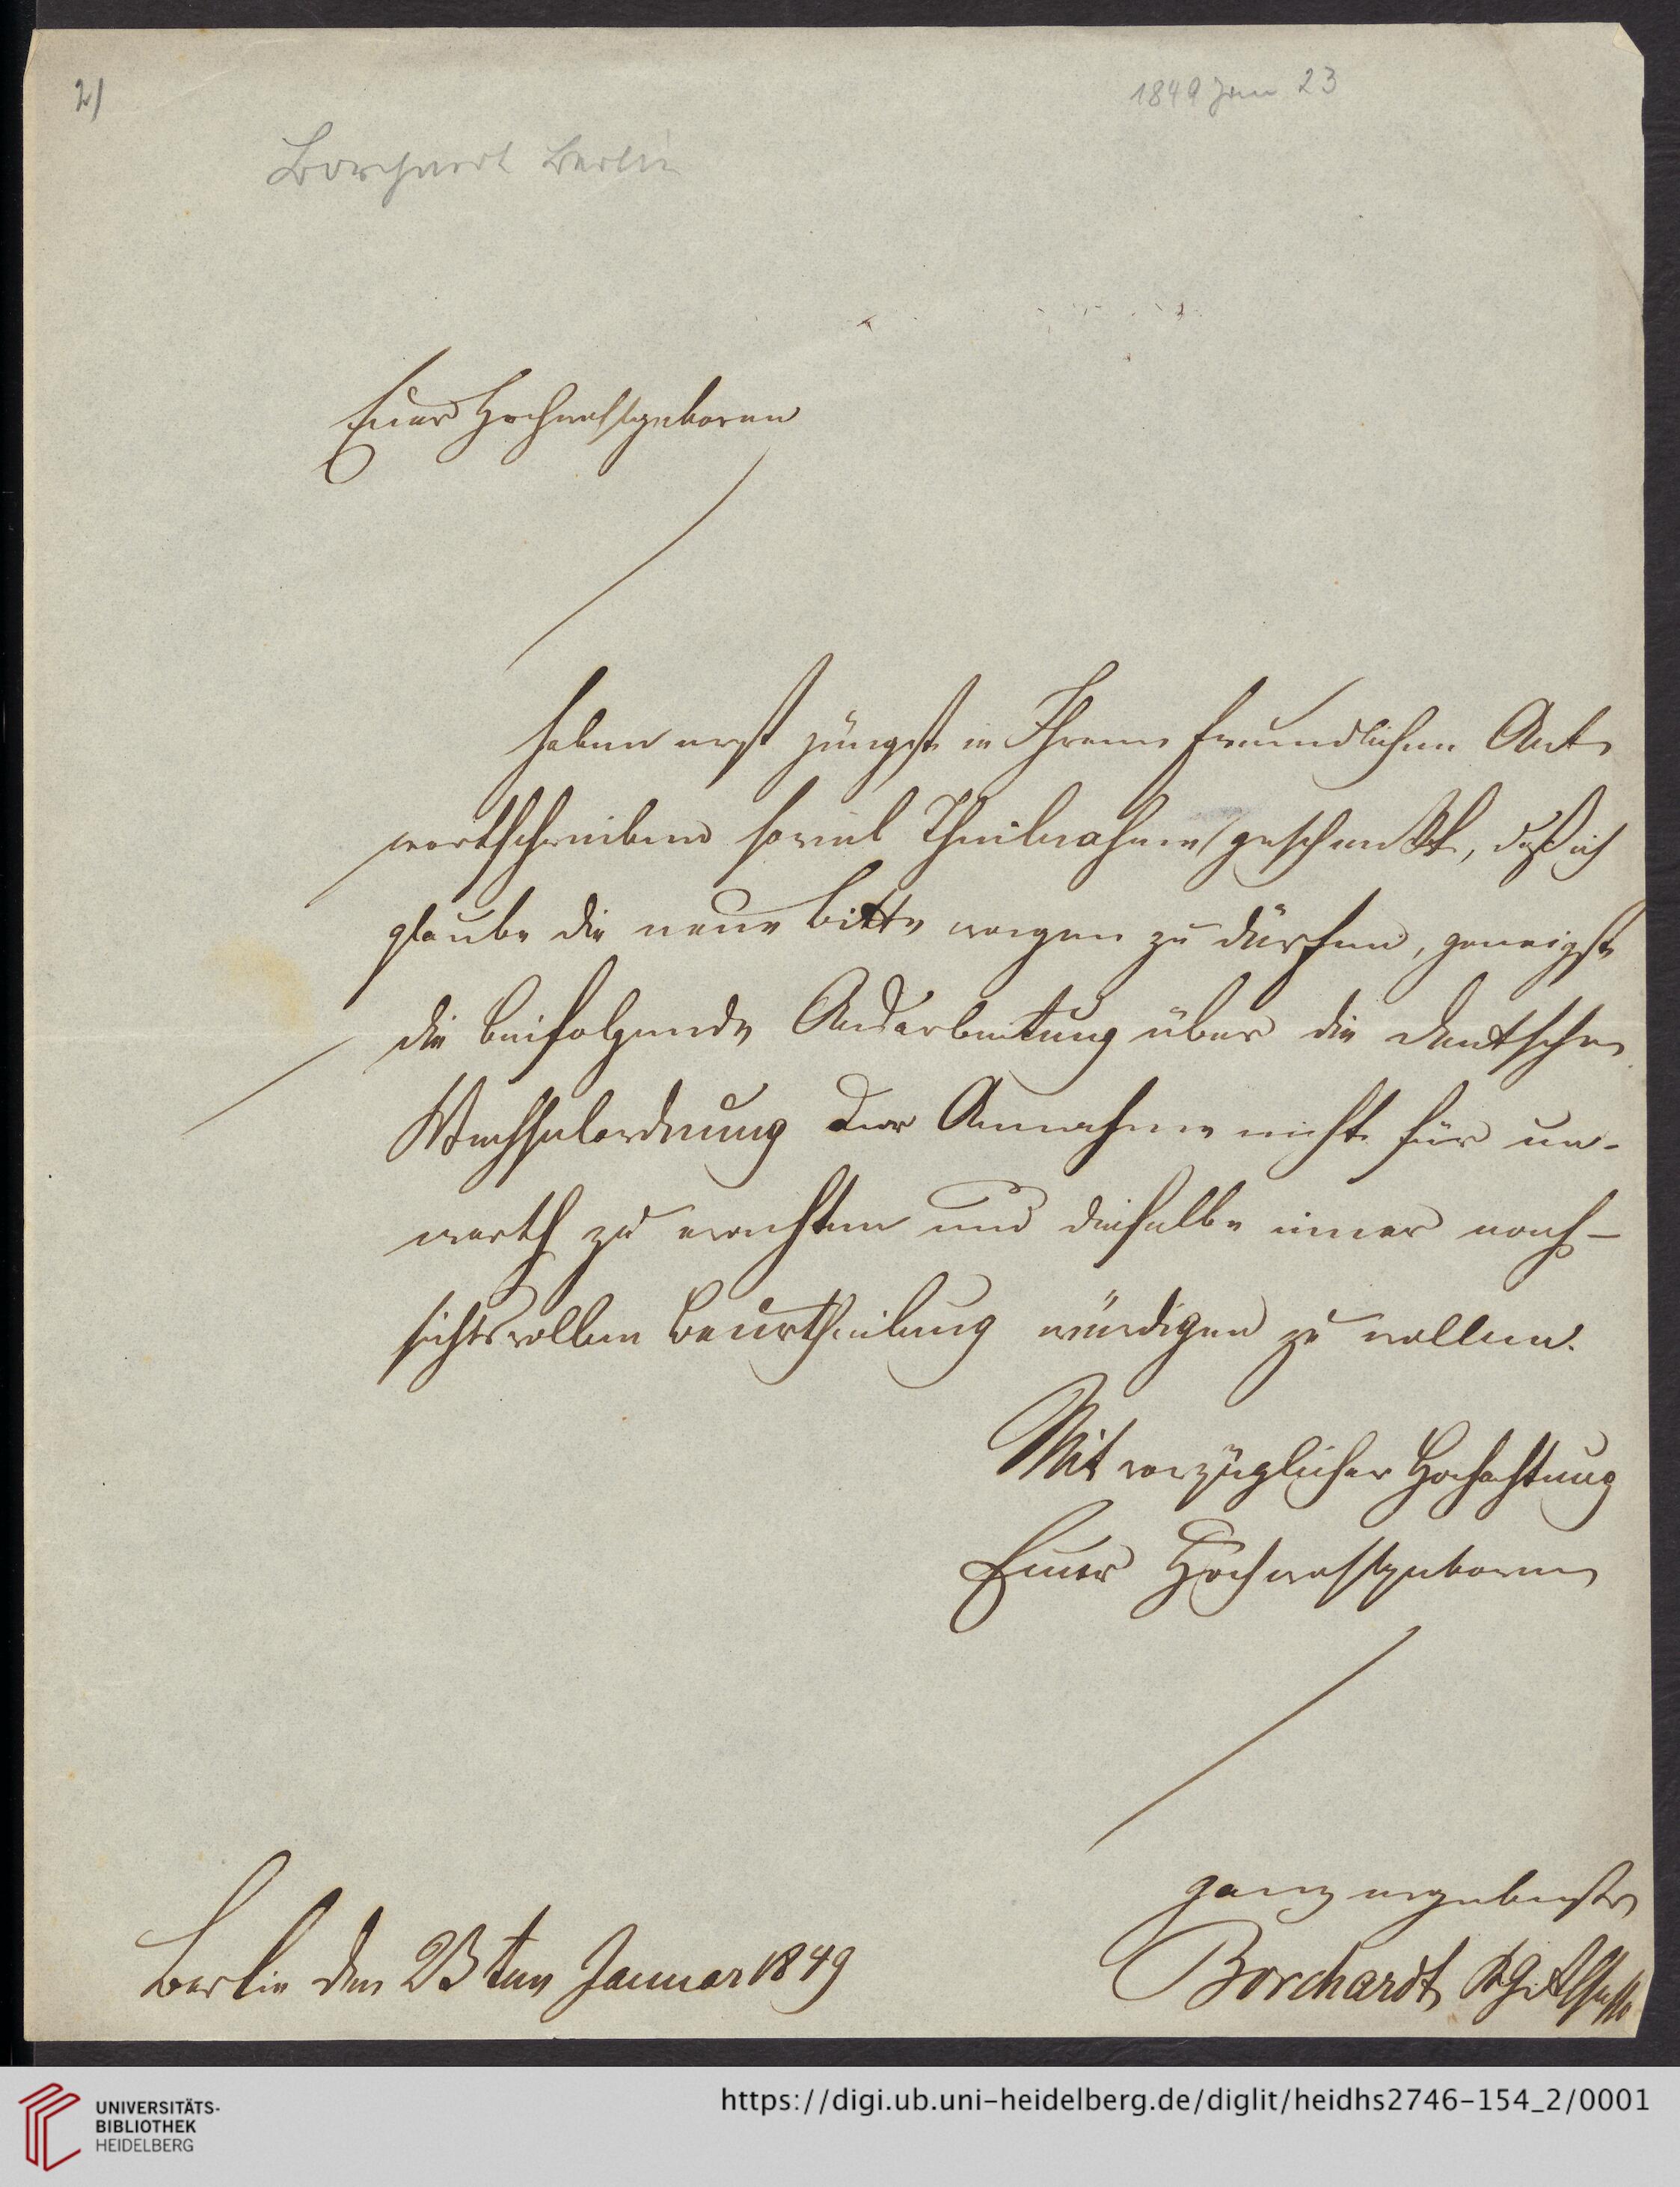 2)
1849 Jan 23
Borchardt Berlin
Euer Hochwohlgeboren
haben erst jüngst in Ihrem freundlichen Ant-
wortschreiben soviel Theilnahme geschenkt, daß ich
glaube die neue Bitte wagen zu dürfen, geneigst
die beifolgende Ausarbeitung über die deutsche
Wechselordnung der Annahme nicht für un-
werth zu erachten und dieselbe einer nach-
sichtsvollen Beurtheilung würdigen zu wollen.
Mit vorzüglicher Hochachtung
Euer Hochwohlgeboren
ganz ergebenster
Borchardt
Berlin den 23ten Januar 1849
UNIVERSITÄTS-
BIBLIOTHEK
HEIDELBERG
https://digi.ub.uni-heidelberg.de/diglit/heidhs2746-154_2/0001